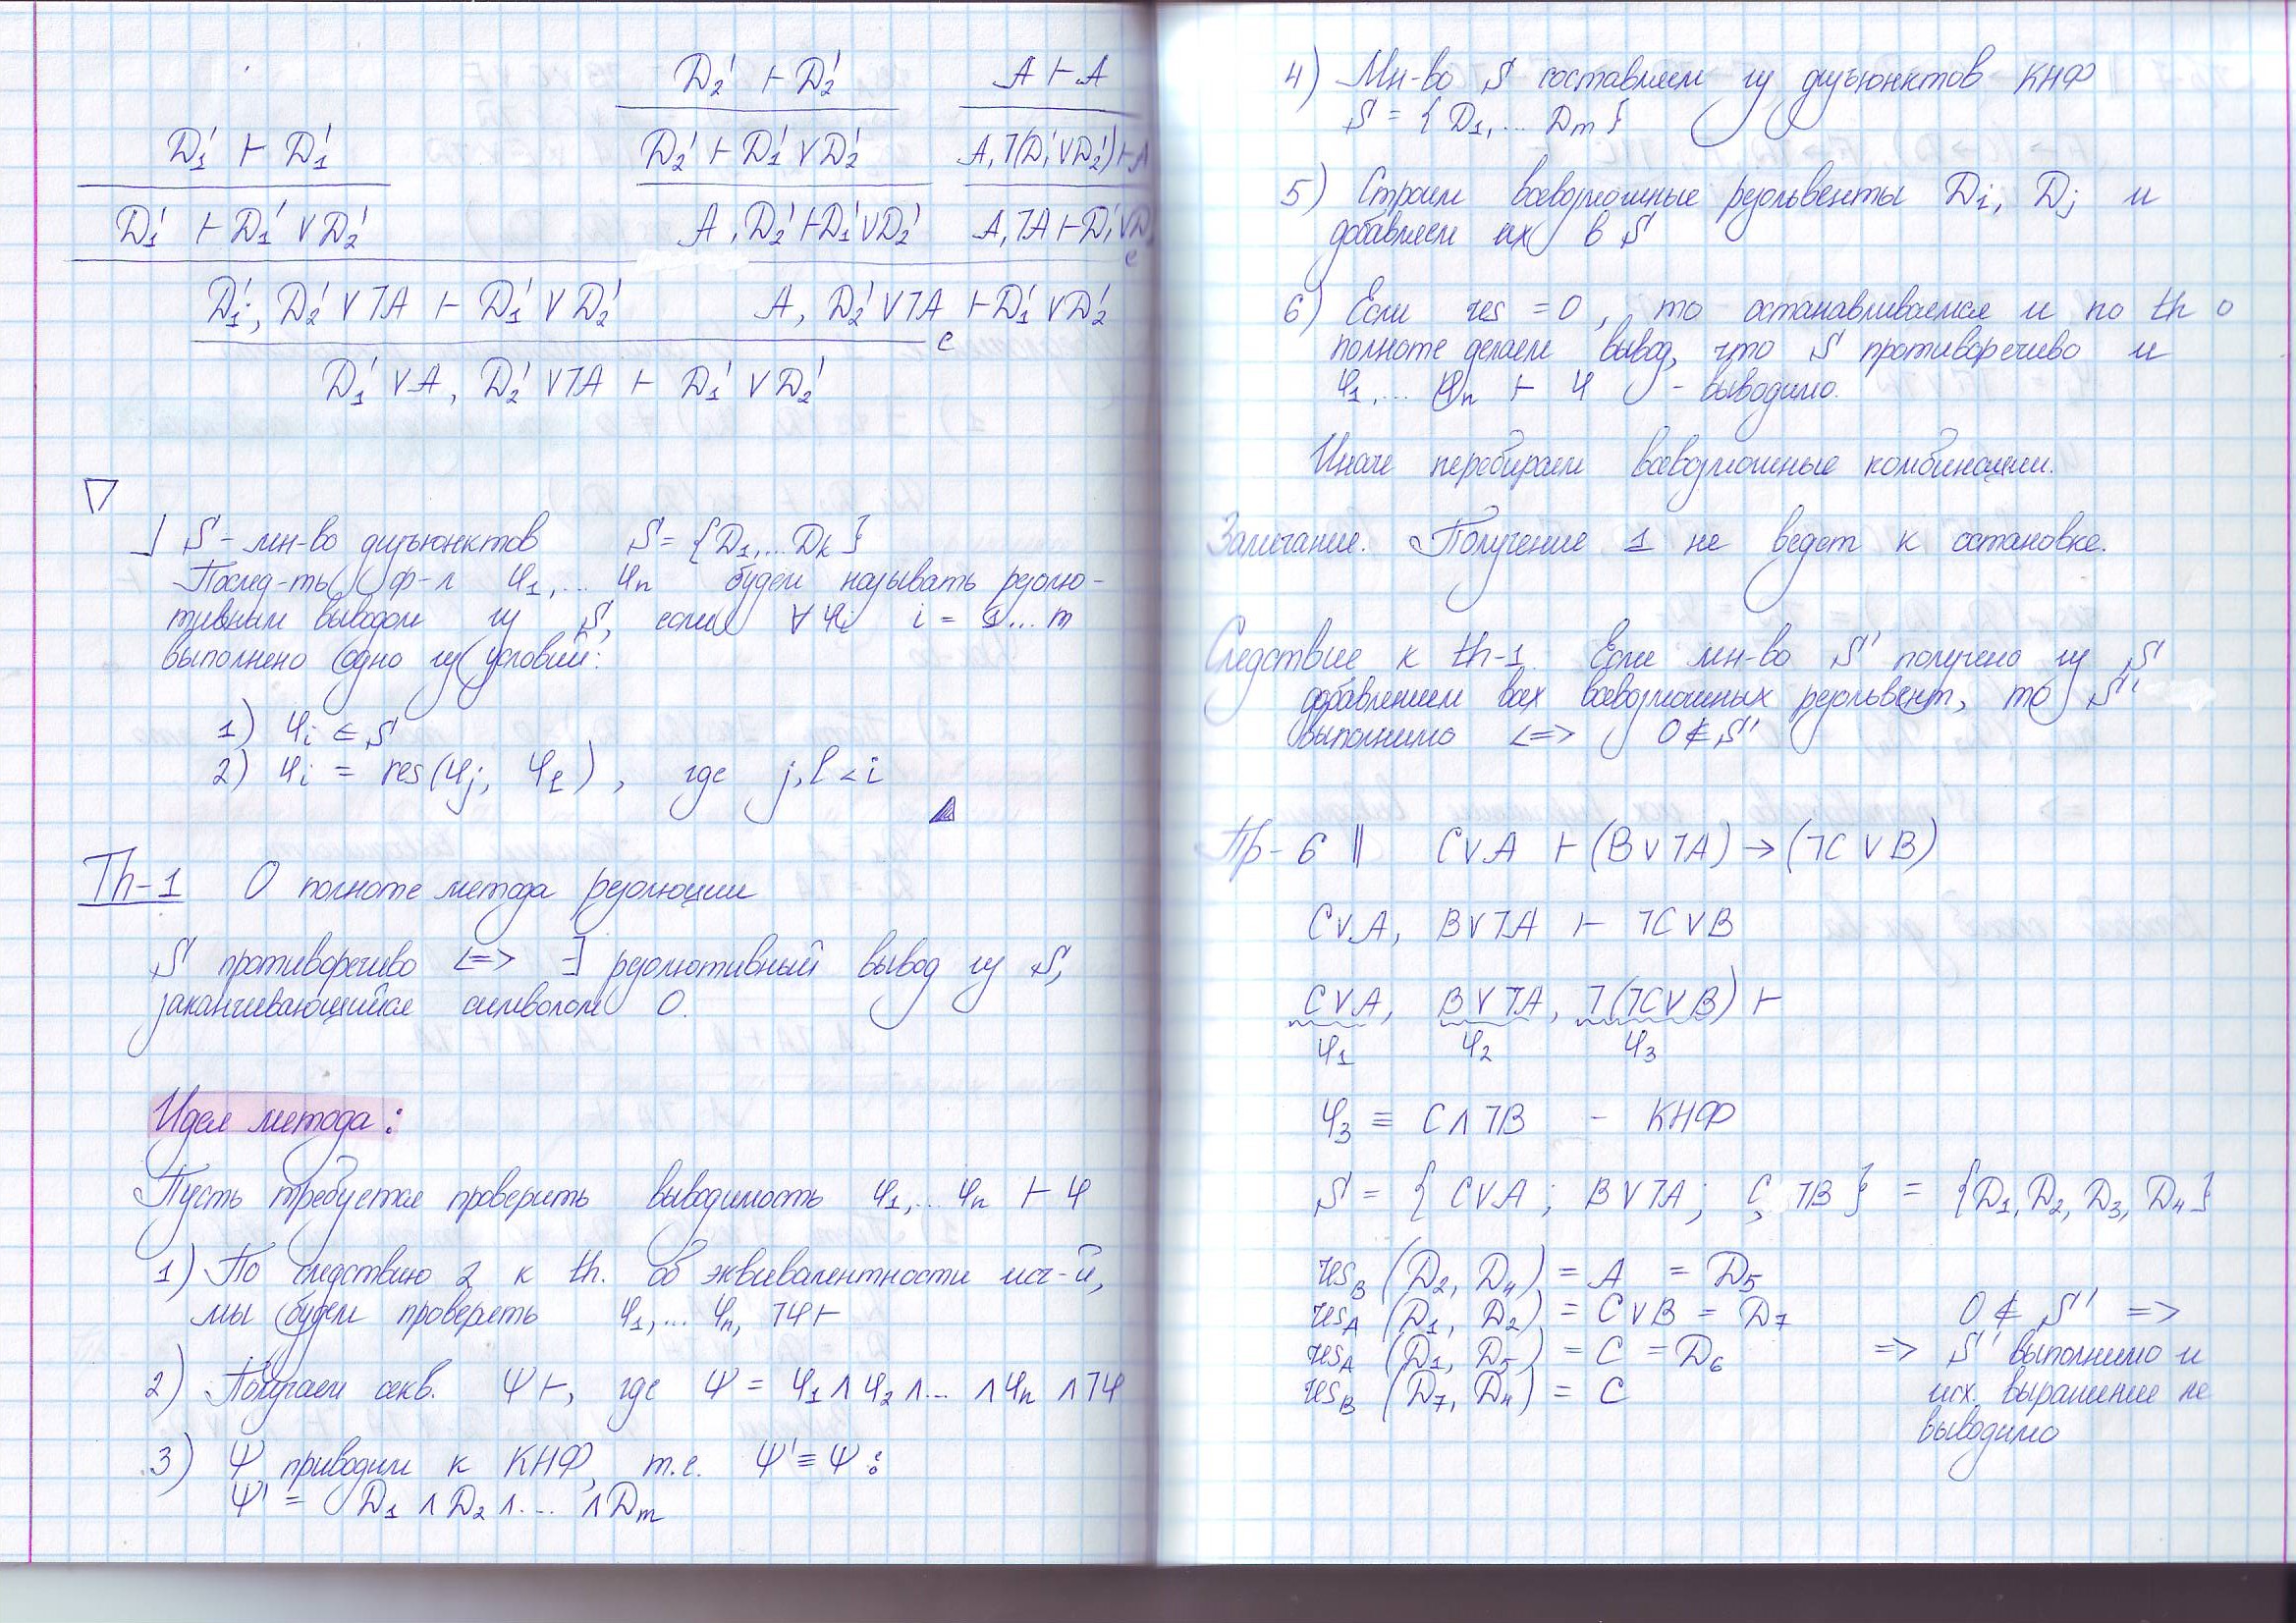 D₂' ⊢ D₂'    A ⊢ A
D₁' ⊢ D₁'    D₂' ⊢ D₁' ∨ D₂'    A, ˥(D₁' ∨ D₂') ⊢ A
D₁' ⊢ D₁' ∨ D₂'    A, D₂' ⊢ D₁' ∨ D₂'    A, ˥A ⊢ D₁' ∨ D
c
D₁', D₂' ∨ ˥A ⊢ D₁' ∨ D₂'    A, D₂' ∨ ˥A ⊢ D₁' ∨ D₂'
c
D₁' ∨ A, D₂' ∨ ˥A ⊢ D₁' ∨ D₂'
▽
⅃ S - мн-во дизъюнктов S = {D₁,... Dₖ}
Послед-ть ф-л φ₁,... φₙ будем называть резолю-
тивным выводом из S, если ∀ φᵢ i = 1...m
выполнено одно из условий:
1) φᵢ ∈ S
2) φᵢ = res(φⱼ, φₗ), где j, l < i
Th-1 О полноте метода резолюции
S противоречиво <=> ∃ резолютивный вывод из S,
заканчивающийся символом 0.
Идея метода:
Пусть требуется проверить выводимость φ₁,... φₙ ⊢ φ
1) По следствию 2 к th. об эквивалентности исч-й,
мы будем проверять φ₁,... φₙ, ˥φ ⊢
2) Получаем секв. Ψ ⊢, где Ψ = φ₁ ∧ φ₂ ∧ ... ∧ φₙ ∧ ˥φ
3) Ψ приводим к КНФ, т.е. Ψ' ≡ Ψ :
Ψ' = D₁ ∧ D₂ ∧ ... ∧ Dₘ
4) Мн-во S составляем из дизъюнктов КНФ
S = {D₁,... Dₘ}
5) Строим всевозможные резольвенты Dᵢ, Dⱼ и
добавляем их в S
6) Если res = 0, то останавливаемся и по th о
полноте делаем вывод, что S противоречиво и
φ₁,... φₙ ⊢ φ - выводимо.
Иначе перебираем всевозможные комбинации.
Замечание. Получение 1 не ведет к остановке.
Следствие к th-1. Если мн-во S' получено из S
добавлением всех всевозможных резольвент, то S'
выполнимо <=> 0 ∉ S'
Пр-6 || C ∨ A ⊢ (B ∨ ˥A) → (˥C ∨ B)
C ∨ A, B ∨ ˥A ⊢ ˥C ∨ B
C ∨ A, B ∨ ˥A, ˥(˥C ∨ B) ⊢
φ₁ φ₂ φ₃
φ₃ ≡ C ∧ ˥B - КНФ
S = {C ∨ A; B ∨ ˥A; C; ˥B} = {D₁, D₂, D₃, D₄}
res_B (D₂, D₄) = A = D₅
res_A (D₁, D₂) = C ∨ B = D₇    0 ∉ S' =>
res_A (D₁, D₅) = C = D₆    => S' выполнимо и
res_B (D₇, D₄) = C    исх. выражение не
выводимо